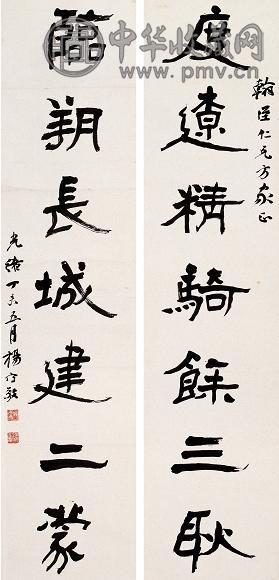 中华收藏网
www.pmv.cn
翰臣仁兄方家正
度遼精騎餘三耿
臨朔長城建二蒙
光緒丁未五月楊守敬